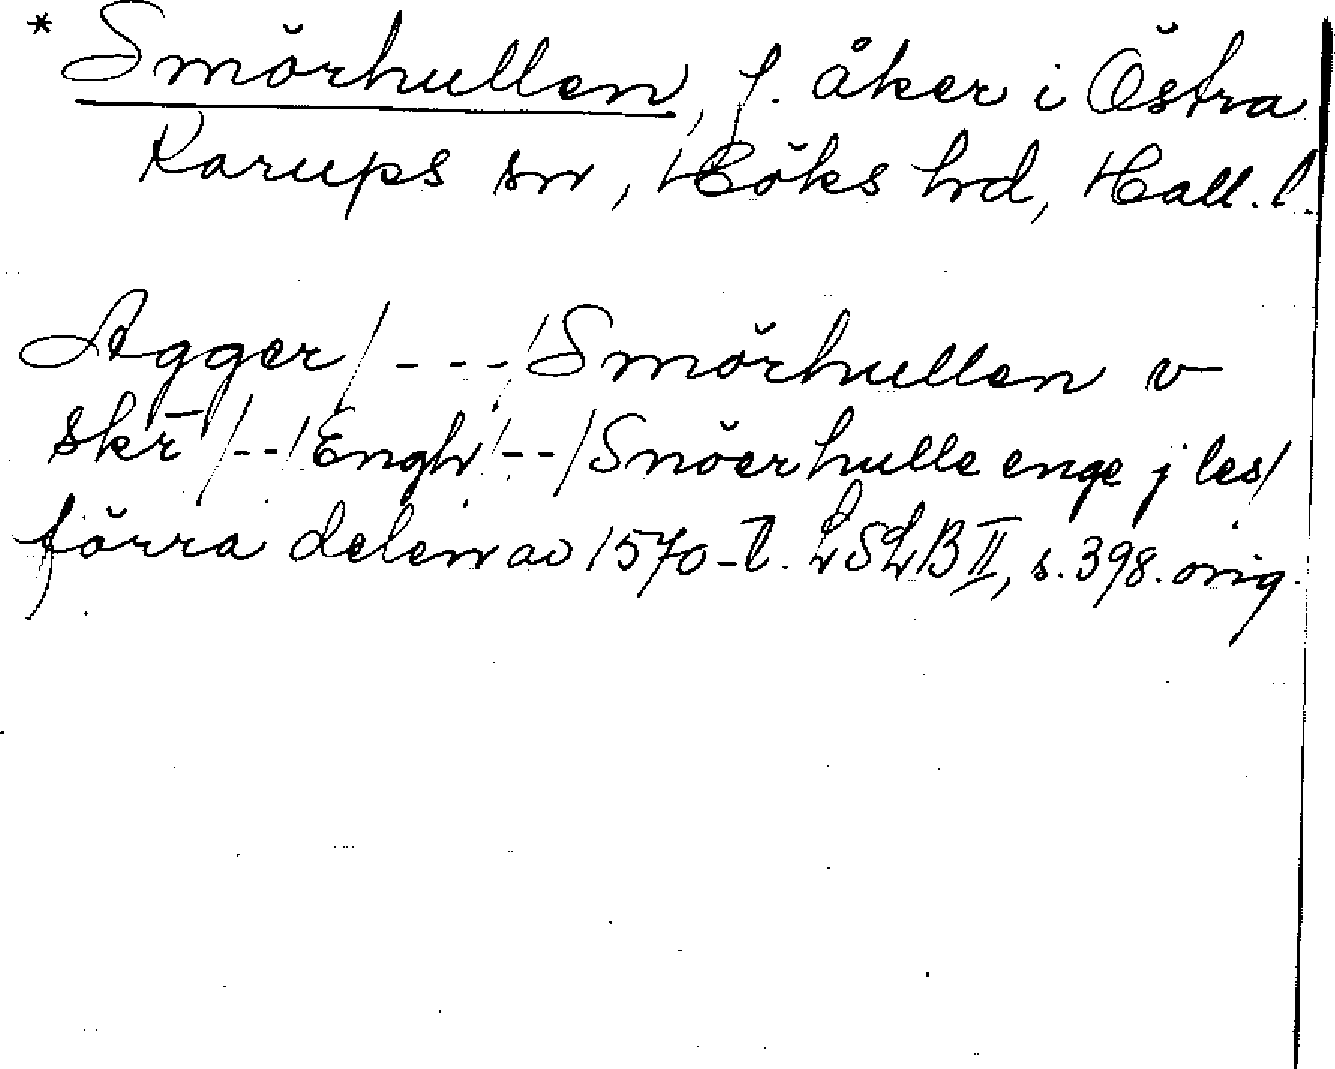 * Smörhullen, f. åker i Östra
Karups sn, Höks hd, Hall. l.
Agger/---/Smörhullen v
skr̄/--/Engh/--/Smöerhulle enge j les/
förra delen av 1570-t. LSLB II, s. 398. orig.